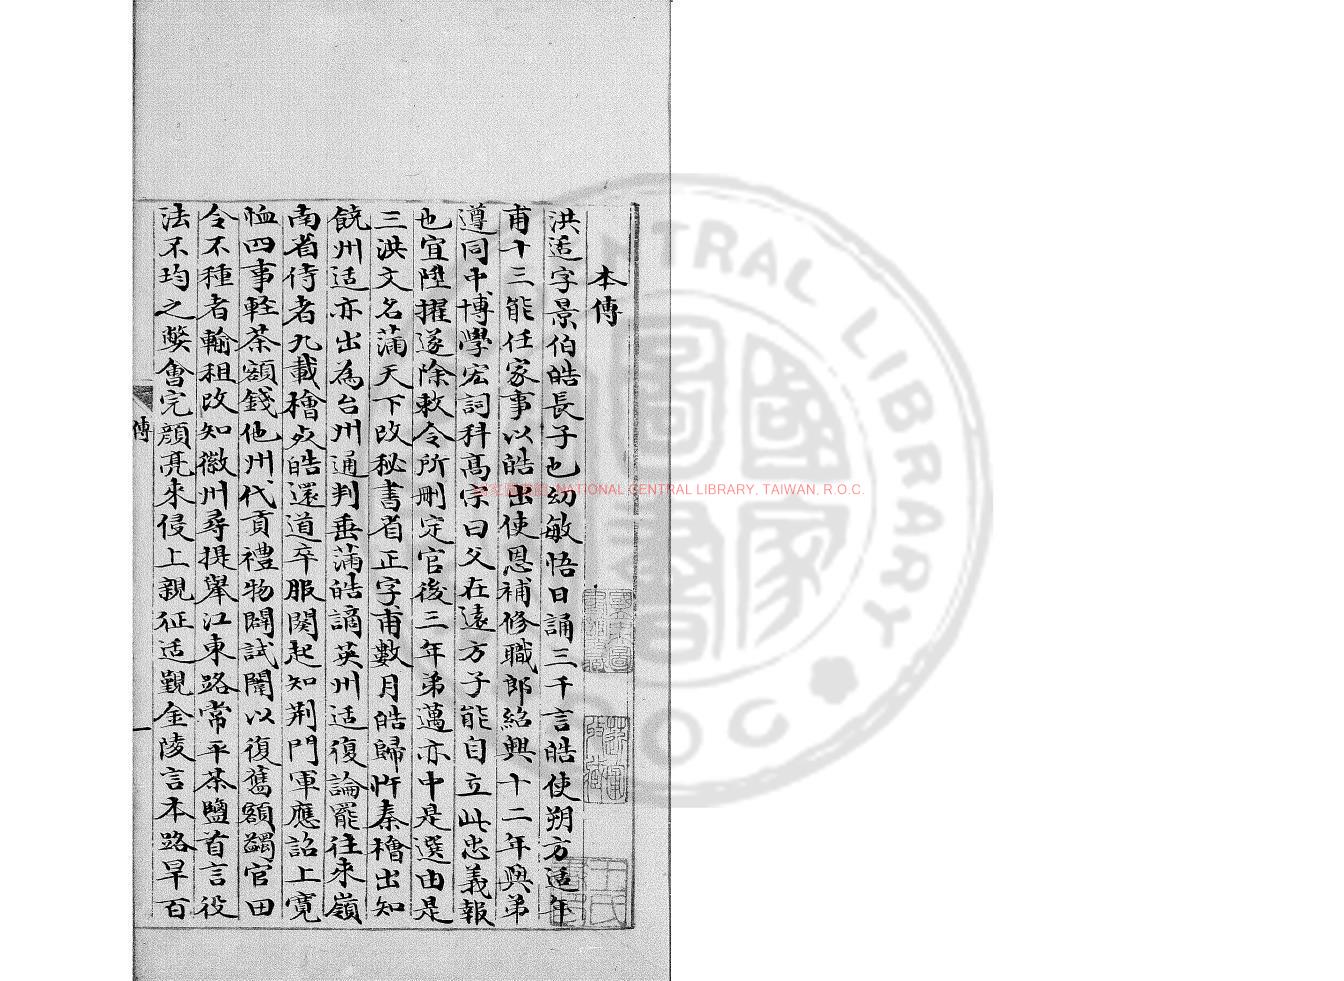 本傳
洪适字景伯皓長子也幼敏悟日誦三千言皓使朔方适年
甫十三能任家事以皓出使恩補修職郎紹興十二年與弟
遵同中博學宏詞科髙宗曰父在遠方子能自立此忠義報
也宜陞擢遂除敕令所刪定官後三年弟邁亦中是選由是
三洪文名滿天下改秘書省正字甫數月皓歸忤秦檜出知
饒州适亦出為台州通判垂滿皓謫英州适復論罷往來嶺
南省侍者九載檜死皓還道卒服闋起知荆門軍應詔上寛
恤四事輕茶額錢他州代貢禮物闢試闈以復舊額蠲官田
令不種者輸租改知徽州尋提舉江東路常平茶鹽首言役
法不均之獘會完顔亮來侵上親征适覲金陵言本路旱百
傳
一
NATIONAL CENTRAL LIBRARY, TAIWAN, R.O.C.
CENTRAL LIBRARY
ROC